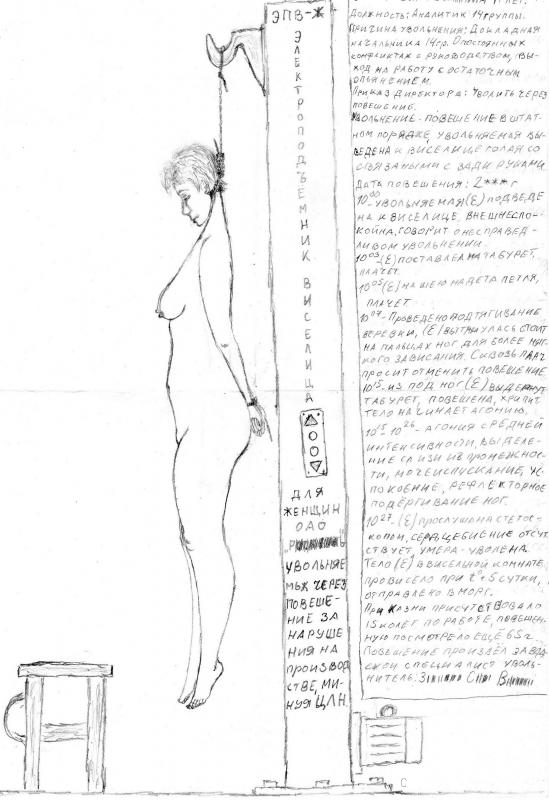 ЭПВ-Ж
ЭЛЕКТРОПОДЪЕМНИК ВИСЕЛИЦА
ДЛЯ
ЖЕНЩИН
ОАО
УВОЛЬНЯЕ
МЫХ ЧЕРЕЗ
ПОВЕШЕ-
НИЕ ЗА
НАРУШЕ
НИЯ НА
ПРОИЗВОД
СТВЕ, МИ-
НУЯ ЦЛН.
ДОЛЖНОСТЬ: АНАЛИТИК 14 ГРУППЫ.
ПРИЧИНА УВОЛЬНЕНИЯ: ДОКЛАДНАЯ
НАЧАЛЬНИКА 14 ГР. О ПОСТОЯННЫХ
КОНФЛИКТАХ С РУКОВОДСТВОМ, ВЫ-
ХОД НА РАБОТУ С ОСТАТОЧНЫМ
ОПЬЯНЕНИЕМ.
ПРИКАЗ ДИРЕКТОРА: УВОЛИТЬ ЧЕРЕЗ
ПОВЕШЕНИЕ.
УВОЛЬНЕНИЕ-ПОВЕШЕНИЕ В ШТАТ-
НОМ ПОРЯДКЕ, УВОЛЬНЯЕМАЯ ВЫ-
ВЕДЕНА К ВИСЕЛИЦЕ ГОЛАЯ СО
СВЯЗАНЫМИ С ЗАДИ РУКАМИ.
ДАТА ПОВЕШЕНИЯ: 2*** г
10⁰⁰-УВОЛЬНЯЕМАЯ (Е) ПОДВЕДЕ
НА К ВИСЕЛИЦЕ, ВНЕШНЕ СПО-
КОЙНА, ГОВОРИТ О НЕСПРАВЕД-
ЛИВОМ УВОЛЬНЕНИИ.
10⁰³-(Е) ПОСТАВЛЕНА НА ТАБУРЕТ,
ПЛАЧЕТ.
10⁰⁵ (Е) НА ШЕЮ НАДЕТА ПЕТЛЯ,
ПЛАЧЕТ
10⁰⁷-ПРОВЕДЕНО ПОДТЯГИВАНИЕ
ВЕРЕВКИ, (Е) ВЫТЯНУЛАСЬ СТОИТ
НА ПАЛЬЦАХ НОГ ДЛЯ БОЛЕЕ МЯГ-
КОГО ЗАВИСАНИЯ. СКВОЗЬ ПЛАЧ
ПРОСИТ ОТМЕНИТЬ ПОВЕШЕНИЕ
10¹⁵-ИЗ ПОД НОГ (Е) ВЫДЕРНУТ
ТАБУРЕТ, ПОВЕШЕНА, ХРИПИТ
ТЕЛО НАЧИНАЕТ АГОНИЮ.
10¹⁵-10²⁶-АГОНИЯ СРЕДНЕЙ
ИНТЕНСИВНОСТИ, ВЫДЕЛЕ-
НИЕ СЛИЗИ ИЗ ПРОМЕЖНОС-
ТИ, МОЧЕИСПУСКАНИЕ, УС-
ПОКОЕНИЕ, РЕФЛЕКТОРНОЕ
ПОДЁРГИВАНИЕ НОГ.
10²⁷-(Е) ПРОСЛУШАНА СТЕТОС-
КОПОМ, СЕРДЦЕБИЕНИЕ ОТСУТ
СТВУЕТ, УМЕРЛА-УВОЛЕНА.
ТЕЛО (Е) В ВИСЕЛЬНОЙ КОМНАТЕ
ПРОВИСЕЛО ПРИ t°+5 СУТКИ,
ОТПРАВЛЕНО В МОРГ.
ПРИ КАЗНИ ПРИСУТСТВОВАЛО
15 КОЛЕГ ПО РАБОТЕ, ПОВЕШЕН-
НУЮ ПОСМОТРЕЛО ЕЩЁ 65 Ч.
ПОВЕШЕНИЕ ПРОИЗВЁЛ ЗАВОД-
СКОЙ СПЕЦИАЛИСТ УВОЛЬ-
НИТЕЛЬ: